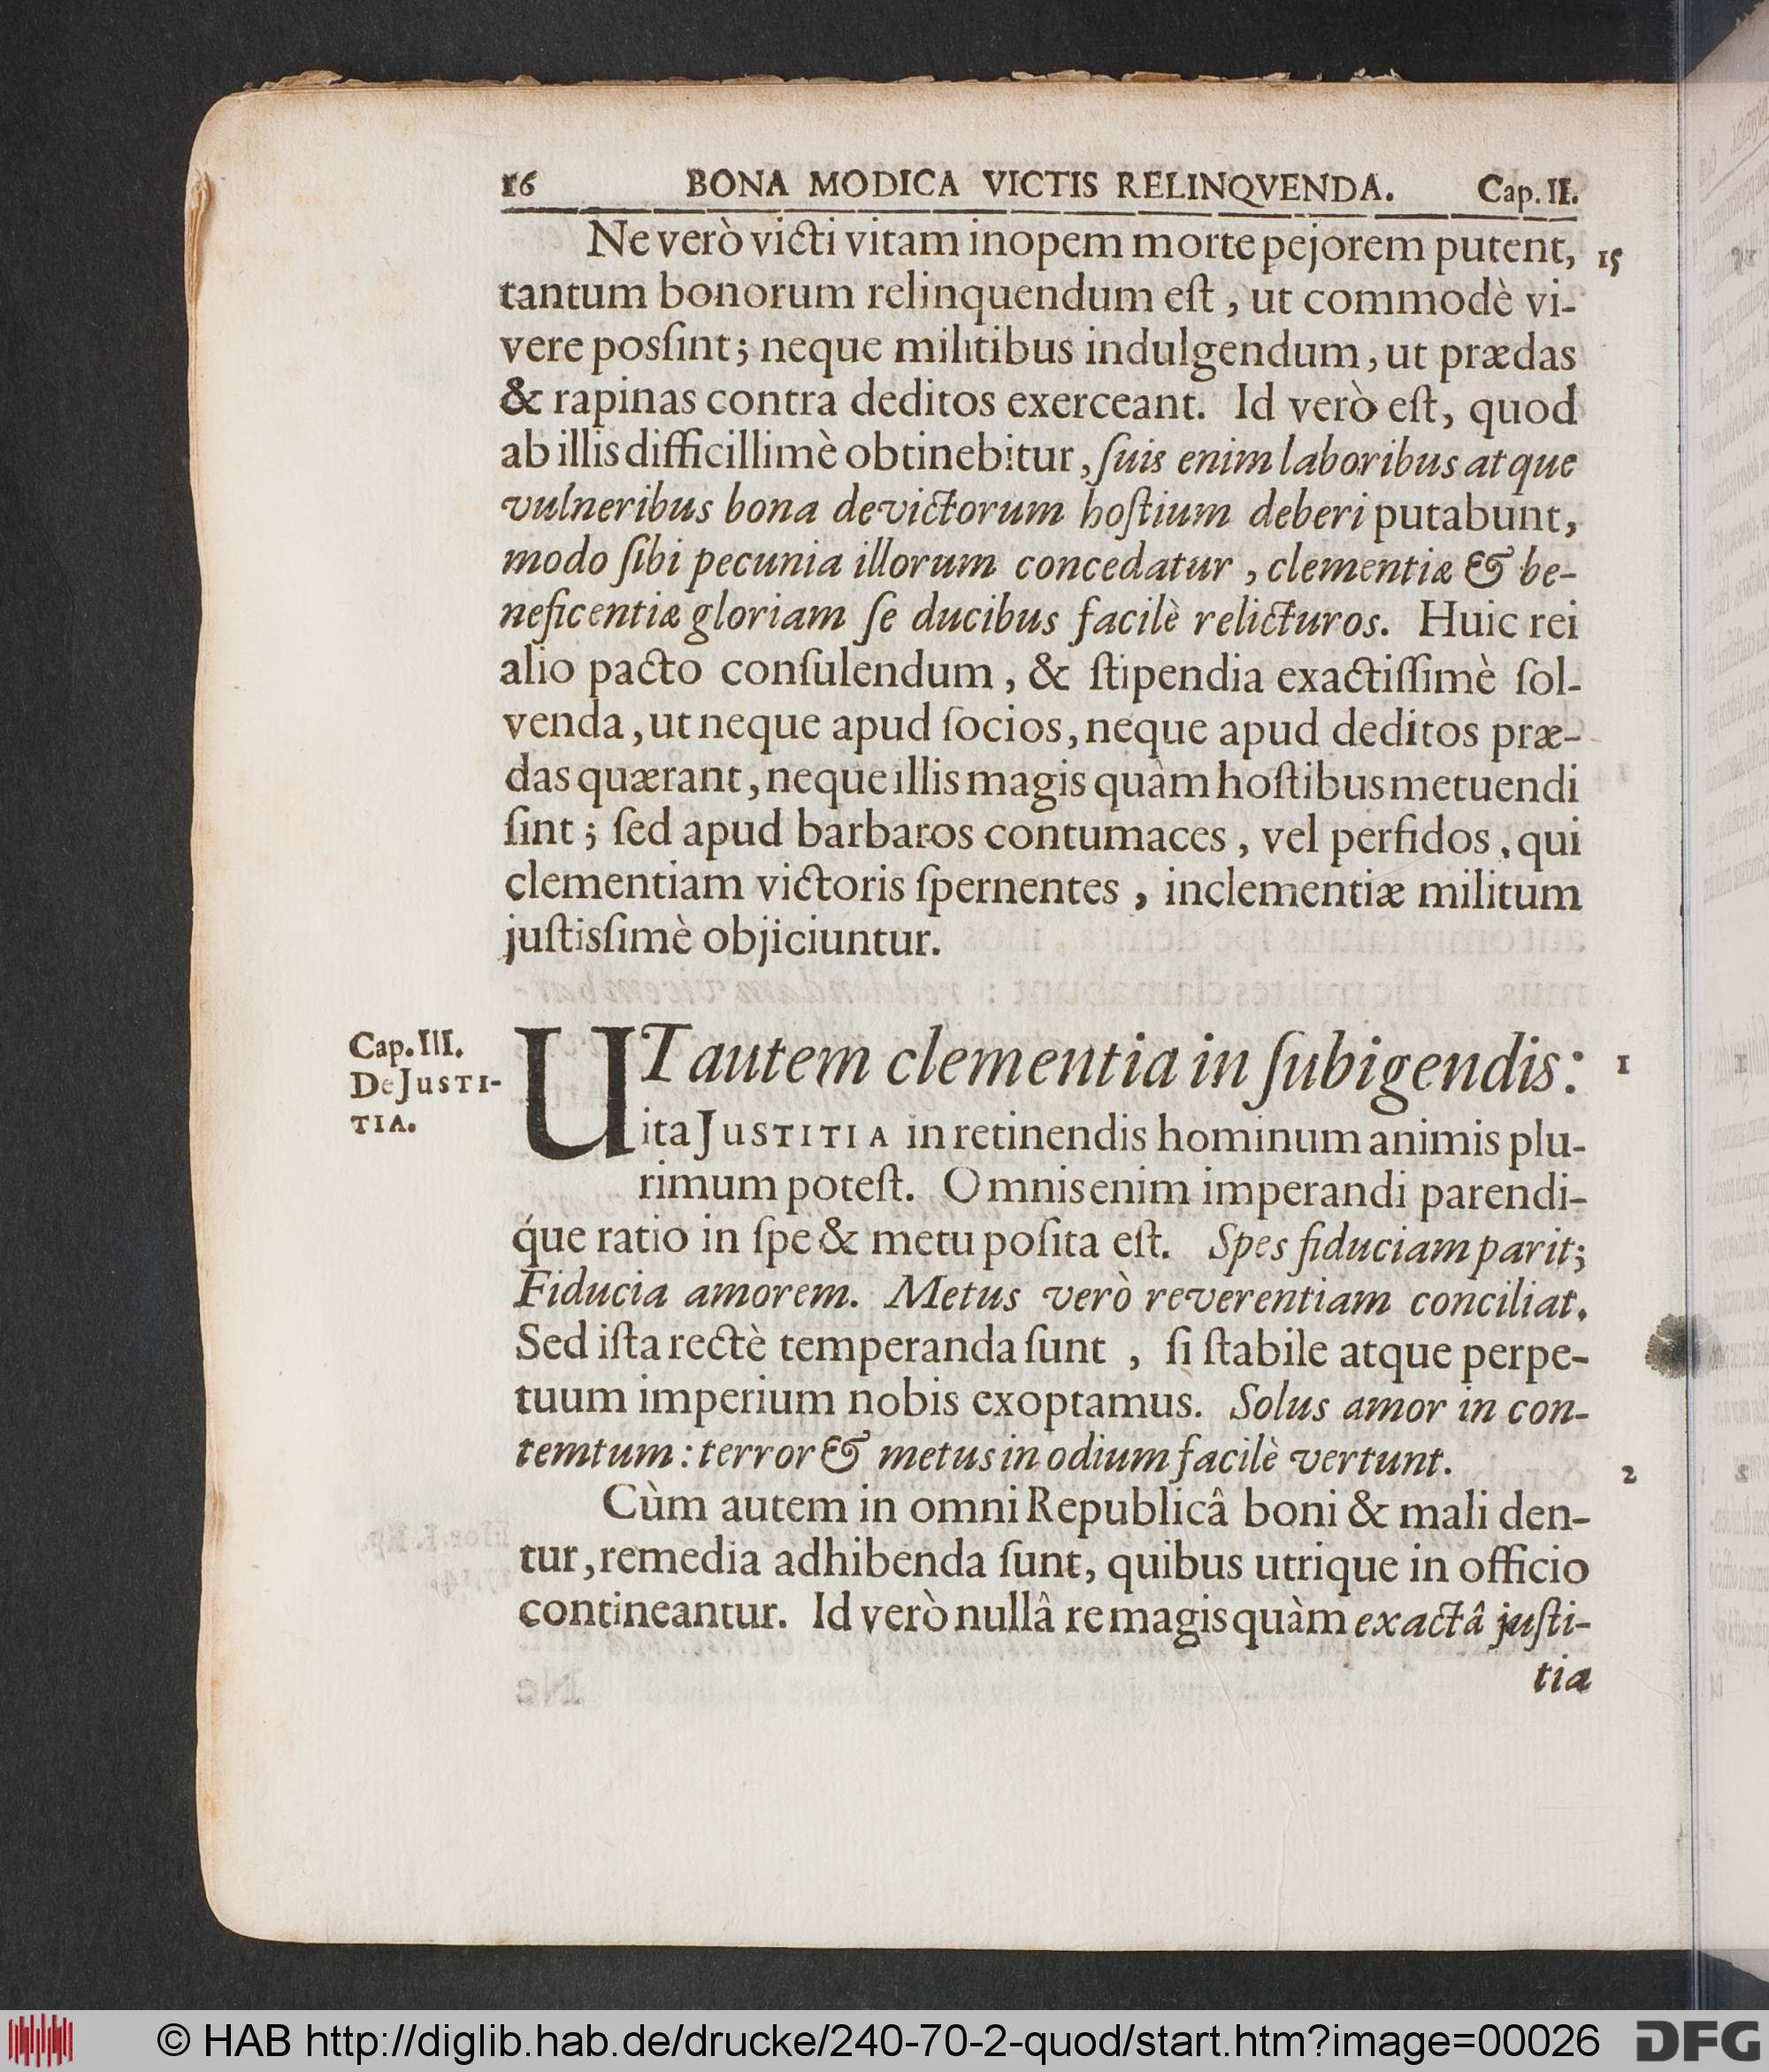 16 BONA MODICA VICTIS RELINQVENDA. Cap. II.
Ne verò victi vitam inopem morte pejorem putent, 15
tantum bonorum relinquendum eſt, ut commodè vi-
vere posſint; neque militibus indulgendum, ut prædas
& rapinas contra deditos exerceant. Id verò eſt, quod
ab illis difficillimè obtinebitur, ſuis enim laboribus atque
vulneribus bona devictorum hoſtium deberi putabunt,
modo ſibi pecunia illorum concedatur, clementiæ & be-
neficentiæ gloriam ſe ducibus facilè relicturos. Huic rei
alio pacto conſulendum, & ſtipendia exactiſſimè ſol-
venda, ut neque apud ſocios, neque apud deditos præ-
das quærant, neque illis magis quàm hoſtibus metuendi
ſint; ſed apud barbaros contumaces, vel perfidos, qui
clementiam victoris ſpernentes, inclementiæ militum
juſtisſimè objiciuntur.
Cap. III.
De JUSTI-
TIA.
UT autem clementia in ſubigendis: 1
ita JUSTITIA in retinendis hominum animis plu-
rimum poteſt. Omnis enim imperandi parendi-
q́ue ratio in ſpe & metu poſita eſt. Spes fiduciam parit;
Fiducia amorem. Metus verò reverentiam conciliat.
Sed iſta rectè temperanda ſunt, ſi ſtabile atque perpe-
tuum imperium nobis exoptamus. Solus amor in con-
temtum: terror & metus in odium facilè vertunt.
2
Cùm autem in omni Republicâ boni & mali den-
tur, remedia adhibenda ſunt, quibus utrique in officio
contineantur. Id verò nullâ re magis quàm exactâ juſti-
tia
© HAB http://diglib.hab.de/drucke/240-70-2-quod/start.htm?image=00026 DFG